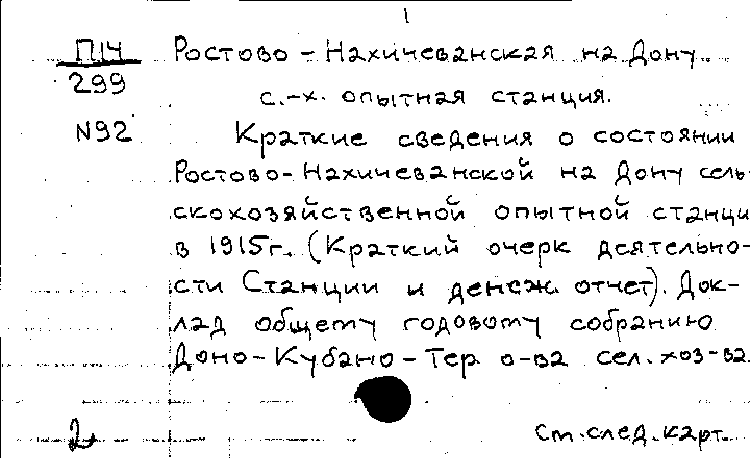 1
П14
299
N92
Ростово - Нахичеванская на Дону
с.-х. опытная станция.
Краткие сведения о состоянии
Ростово-Нахичеванской на Дону сель-
скохозяйственной опытной станци
в 1915г. (Краткий очерк деятельно-
сти Станции и денеж. отчет). Док-
лад общему годовому собранию
Доно-Кубано-Тер. о-ва сел. хоз-ва.
2
См. след. карт.